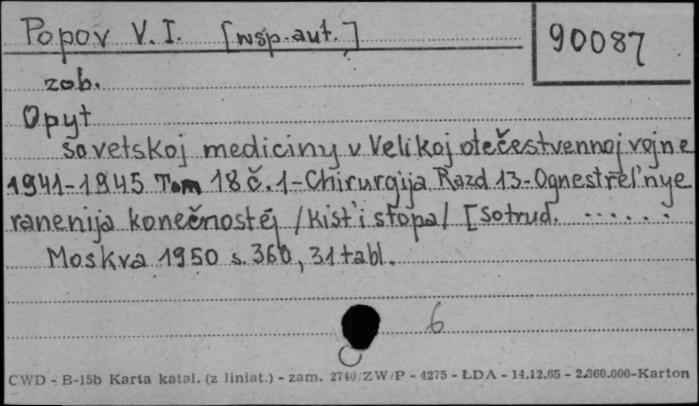 Popov V. I. [wsp. aut.]
90087
zob.
Opyt
sovetskoj mediciny v Velikoj otečestvennoj vojne
1941-1945 Tom 18 č. 1 - Chirurgija Razd 13 - Ognestrel'nye
ranenija konečnostej /kist' i stopa/ [Sotrud. ......
Moskva 1950 s. 360, 31 tabl.
6
CWD - B-15b Karta katal. (z liniat.) - zam. 2740/ZW/P - 4275 - ŁDA - 14.12.65 - 2.360.000-Karton